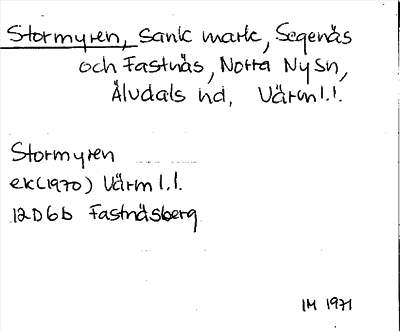 Stormyren, sank mark, Segenäs
och Fastnäs, Norra Ny sn,
Älvdals hd, Värml.l.
Stormyren
ek (1970) Värml.l.
12D6b Fastnäsberg
IM 1971